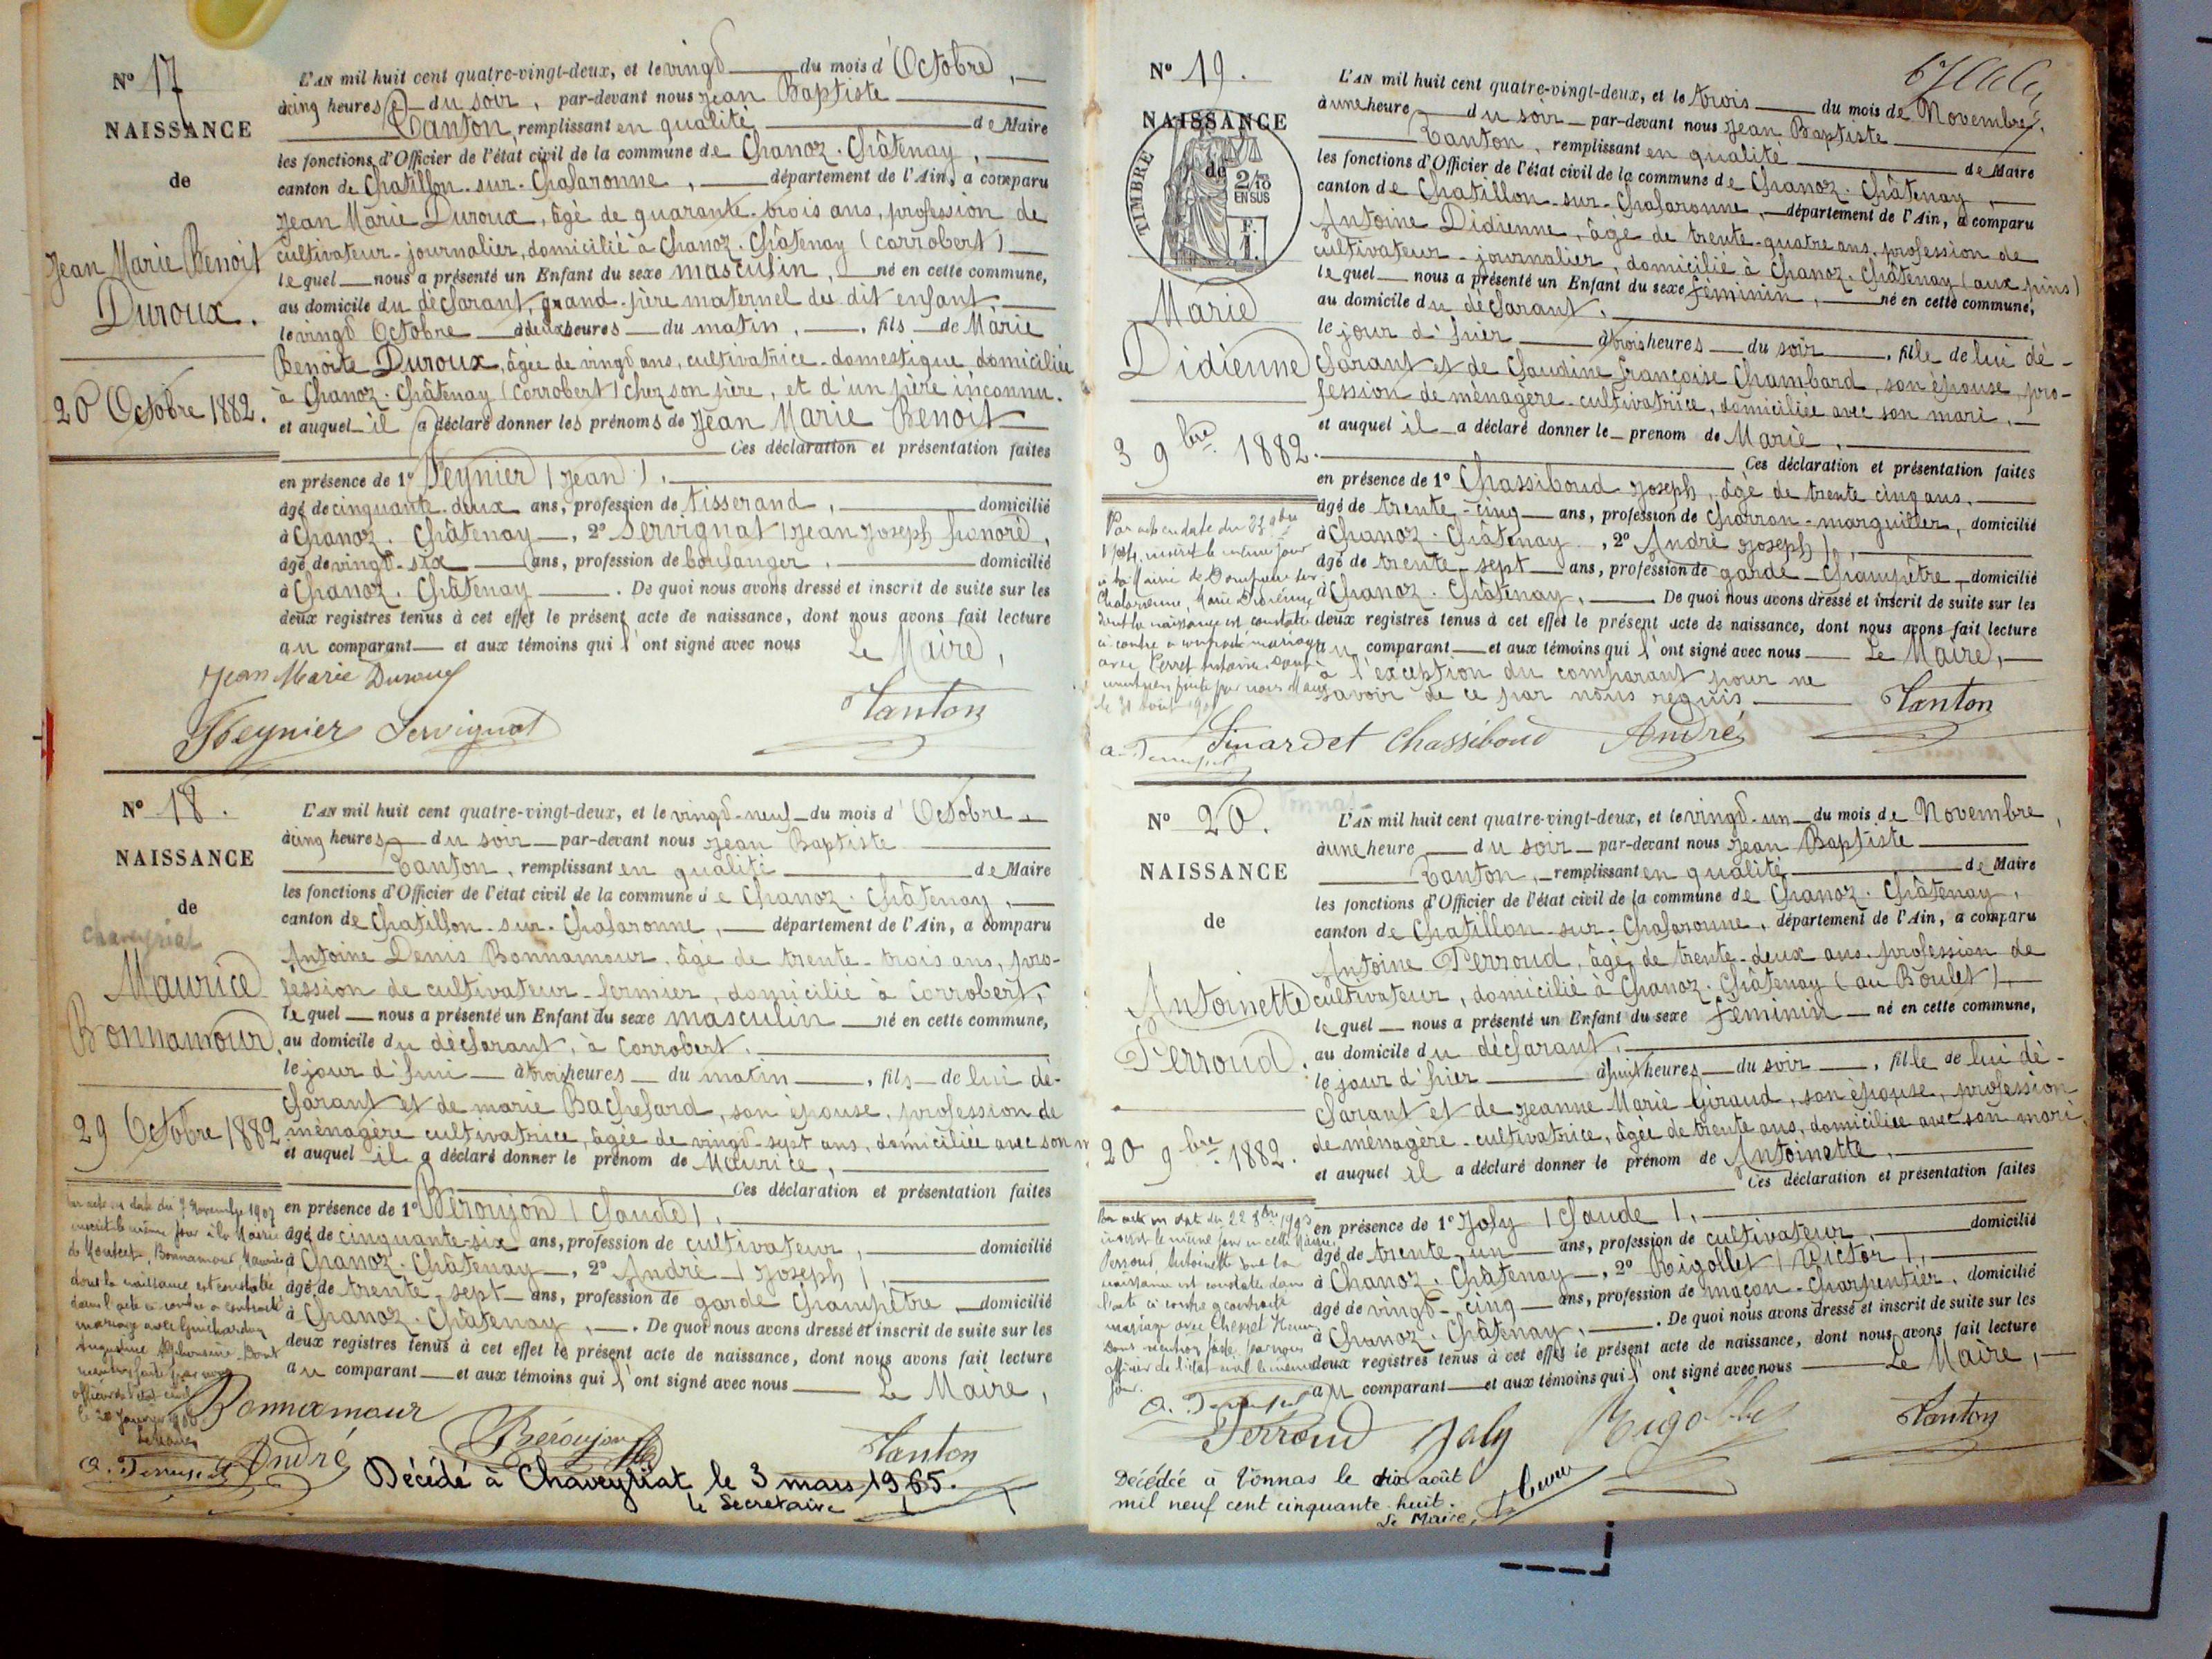 N° 17
NAISSANCE
de
Jean Marie Benoit
Duroux.
20 Octobre 1882.
L'AN mil huit cent quatre-vingt-deux, et le vingt du mois d'Octobre,
à cinq heures du soir, par-devant nous Jean Baptiste
Tanton, remplissant en qualité de Maire
les fonctions d'Officier de l'état civil de la commune de Chanoz-Châtenay,
canton de Chatillon-sur-Chalaronne, département de l'Ain, a comparu
Jean Marie Duroux, âgé de quarante-trois ans, profession de
cultivateur-journalier, domicilié à Chanoz-Châtenay (Corrobert)
lequel nous a présenté un Enfant du sexe masculin, né en cette commune,
au domicile du déclarant, grand-père maternel du dit enfant,
le vingt Octobre à deux heures du matin, fils de Marie
Benoite Duroux, âgée de vingt ans, cultivatrice-domestique domiciliée
à Chanoz-Châtenay (Corrobert) chez son père, et d'un père inconnu.
et auquel il a déclaré donner les prénoms de Jean Marie Benoit
Ces déclaration et présentation faites
en présence de 1° Peynier (Jean),
âgé de cinquante-deux ans, profession de tisserand, domicilié
à Chanoz-Châtenay, 2° Servignat (Jean Joseph honoré),
âgé de vingt-six ans, profession de boulanger, domicilié
à Chanoz-Châtenay. De quoi nous avons dressé et inscrit de suite sur les
deux registres tenus à cet effet le présent acte de naissance, dont nous avons fait lecture
au comparant et aux témoins qui l'ont signé avec nous Le Maire,
Jean Marie Duroux
Peynier Servignat Tanton
N° 18.
NAISSANCE
de
Chaveyriat
Maurice
Bonnamour.
29 Octobre 1882
L'AN mil huit cent quatre-vingt-deux, et le vingt-neuf du mois d'Octobre
à cinq heures du soir par-devant nous Jean Baptiste
Tanton, remplissant en qualité de Maire
les fonctions d'Officier de l'état civil de la commune de Chanoz-Châtenay,
canton de Chatillon-sur-Chalaronne, département de l'Ain, a comparu
Antoine Denis Bonnamour, âgé de trente-trois ans, pro-
fession de cultivateur-fermier, domicilié à Corrobert,
lequel nous a présenté un Enfant du sexe masculin né en cette commune,
au domicile du déclarant, à Corrobert.
le jour d'hui à trois heures du matin, fils de lui dé-
clarant et de marie Bachelard, son épouse, profession de
ménagère cultivatrice, âgée de vingt-sept ans, domiciliée avec son m
et auquel il a déclaré donner le prénom de Maurice,
Ces déclaration et présentation faites
en présence de 1° Béroujon (Claude),
âgé de cinquante-six ans, profession de cultivateur, domicilié
à Chanoz-Châtenay, 2° André (Joseph),
âgé de trente-sept ans, profession de garde Champêtre, domicilié
à Chanoz-Châtenay, De quoi nous avons dressé et inscrit de suite sur les
deux registres tenus à cet effet le présent acte de naissance, dont nous avons fait lecture
au comparant et aux témoins qui l'ont signé avec nous Le Maire,
Par acte en date du 7 Novembre 1907
inscrit le même jour à la Mairie
de Montcet, Bonnamour, Maurice
dont la naissance est constatée
dans l'acte ci contre a contracté
mariage avec Guichardon
Augustine Dont
mention faite par nous
officier de l'état civil
Bonnamour
André Béroujon Tanton
Décédé à Chaveyriat le 3 mars 1965.
le Secretaire
N° 19.
NAISSANCE
de
TIMBRE
2/10
EN SUS
F.
1.
Marie
Didienne
3 9bre 1882.
L'AN mil huit cent quatre-vingt-deux, et le trois du mois de Novembre,
à une heure du soir par-devant nous Jean Baptiste
Tanton, remplissant en qualité de Maire
les fonctions d'Officier de l'état civil de la commune de Chanoz-Châtenay,
canton de Chatillon-sur-Chalaronne, département de l'Ain, a comparu
Antoine Didienne, âgé de trente-quatre ans, profession de
cultivateur-journalier, domicilié à Chanoz-Châtenay (aux pins)
lequel nous a présenté un Enfant du sexe féminin, né en cette commune,
au domicile du déclarant,
le jour d'hier à trois heures du soir, fille de lui dé-
clarant et de Claudine françoise Chambard, son épouse, pro-
fession de ménagère-cultivatrice, domiciliée avec son mari,
et auquel il a déclaré donner le prenom de Marie,
Ces déclaration et présentation faites
en présence de 1° Chassiboud Joseph, âgé de trente cinq ans,
âgé de trente-cinq ans, profession de Charron-marguiller, domicilié
à Chanoz-Châtenay, 2° André Joseph),
âgé de trente-sept ans, profession de garde-Champêtre, domicilié
à Chanoz-Châtenay, De quoi nous avons dressé et inscrit de suite sur les
deux registres tenus à cet effet le présent acte de naissance, dont nous avons fait lecture
au comparant et aux témoins qui l'ont signé avec nous Le Maire,
à l'exception du comparant pour ne
savoir de ce par nous requis
Par acte en date du
inscrit le même jour
à la Mairie de Dompierre sur
Chalaronne, Marie Didienne
dont la naissance est constatée
ci contre a contracté mariage
avec
mention faite par nous Maire
Chassiboud André Tanton
N° 20.
NAISSANCE
de
Vonnas
Antoinette
Perroud.
20 9bre 1882.
L'AN mil huit cent quatre-vingt-deux, et le vingt-un du mois de Novembre,
à une heure du soir par-devant nous Jean Baptiste
Tanton, remplissant en qualité de Maire
les fonctions d'Officier de l'état civil de la commune de Chanoz-Châtenay,
canton de Chatillon-sur-Chalaronne, département de l'Ain, a comparu
Antoine Perroud, âgé de trente-deux ans, profession de
cultivateur, domicilié à Chanoz-Châtenay (au Boulet),
lequel nous a présenté un Enfant du sexe féminin né en cette commune,
au domicile du déclarant,
le jour d'hier à huit heures du soir, fille de lui dé-
clarant et de Jeanne Marie Giraud, son épouse, profession
de ménagère-cultivatrice, âgée de trente ans, domiciliée avec son mari,
et auquel il a déclaré donner le prénom de Antoinette,
Ces déclaration et présentation faites
en présence de 1° Joly (Claude),
âgé de trente-un ans, profession de cultivateur, domicilié
à Chanoz-Châtenay, 2° Rigollet (Victor),
âgé de vingt-cinq ans, profession de maçon-Charpentier, domicilié
à Chanoz-Châtenay, De quoi nous avons dressé et inscrit de suite sur les
deux registres tenus à cet effet le présent acte de naissance, dont nous avons fait lecture
au comparant et aux témoins qui l'ont signé avec nous Le Maire,
Par acte en date du 22
inscrit le même jour en cette Mairie,
Perroud, Antoinette dont la
naissance est constatée dans
l'acte ci contre a contracté
mariage avec
Dont mention faite par nous
officier de l'état civil le même
jour.
Perroud Joly Rigollet Tanton
Décédée à Vonnas le dix août
mil neuf cent cinquante-huit.
Le Maire,